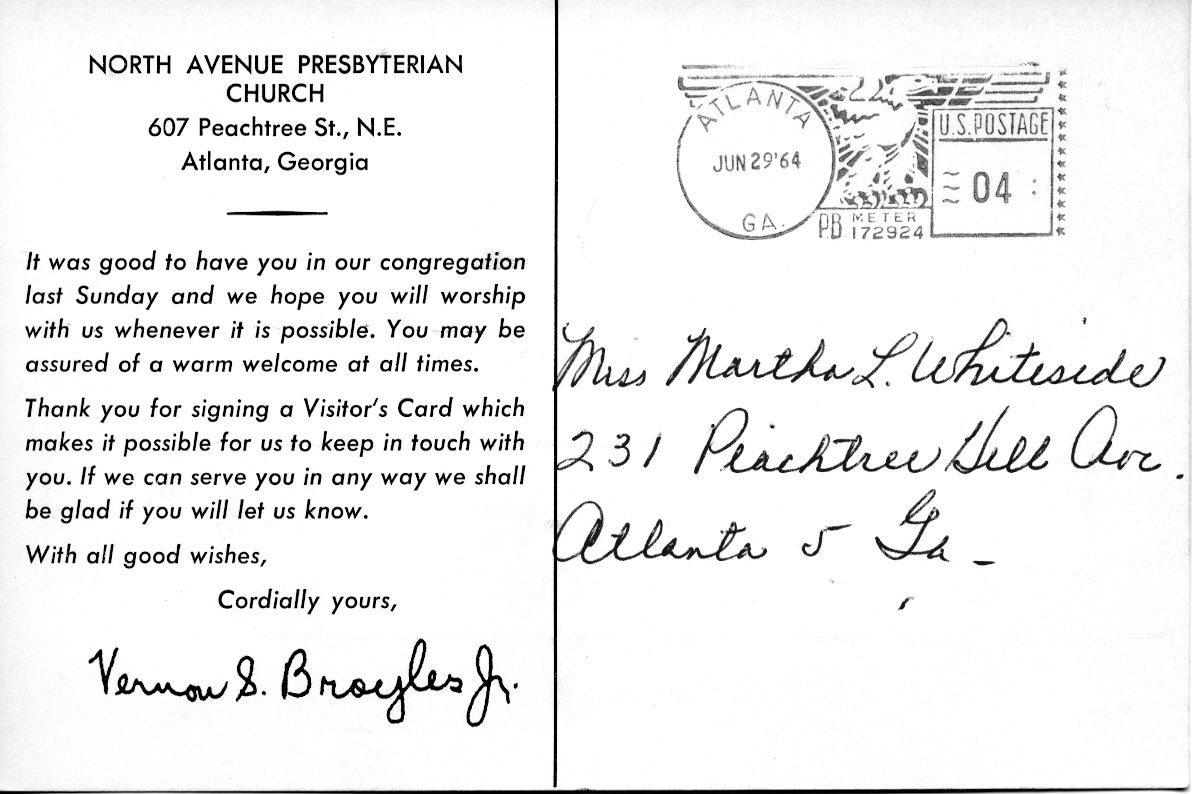 NORTH AVENUE PRESBYTERIAN
CHURCH
607 Peachtree St., N.E.
Atlanta, Georgia
It was good to have you in our congregation
last Sunday and we hope you will worship
with us whenever it is possible. You may be
assured of a warm welcome at all times.
Thank you for signing a Visitor's Card which
makes it possible for us to keep in touch with
you. If we can serve you in any way we shall
be glad if you will let us know.
With all good wishes,
Cordially yours,
Vernon S. Broyles Jr.
ATLANTA
JUN 29 '64
GA.
P.B. METER
172924
U.S. POSTAGE
04
Miss Martha L. Whiteside
231 Peachtree Hill Ave.
Atlanta 5 Ga